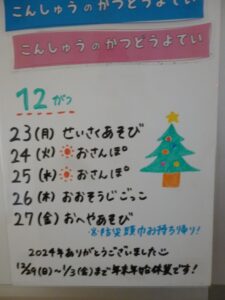 こんしゅうのかつどうよてい
こんしゅうのかつどうよてい
12がつ
23(月) せいさくあそび
24(火) おさんぽ
25(水) おさんぽ
26(木) おおそうじごっこ
27(金) おへやあそび
※防災頭巾お持ち帰り!
2024年ありがとうございました
12/29(日)~1/3(金)まで年末年始休業です!